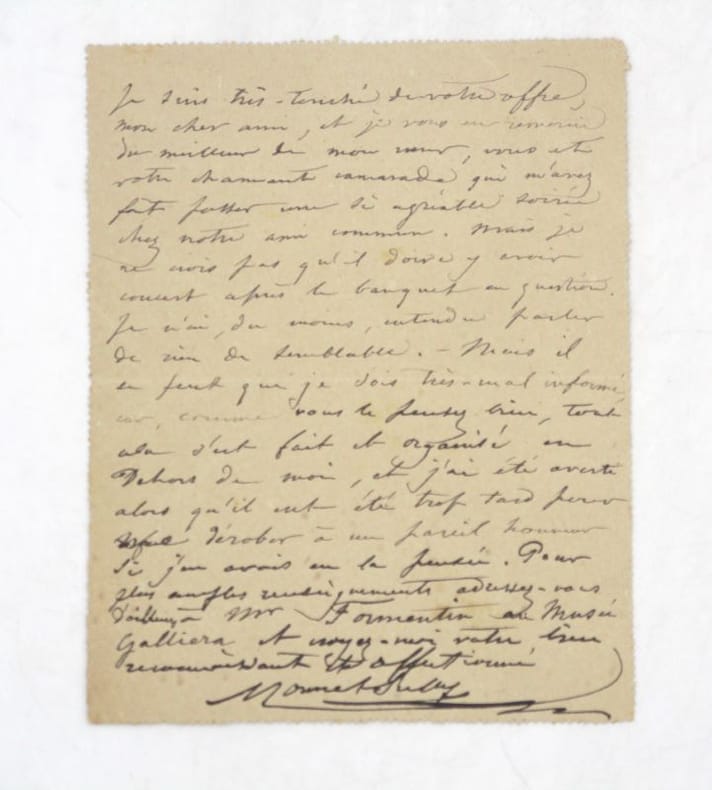 Je suis très-touché de votre offre,
mon cher ami, et je vous en remercie
du meilleur de mon cœur, vous et
votre charmante camarade qui m'avez
fait passer une si agréable soirée
chez notre ami commun. Mais je
ne crois pas qu'il doive y avoir
concert après le banquet en question.
Je n'ai, du moins, entendu parler
de rien de semblable. – Mais il
se peut que je sois très-mal informé,
car, comme vous le pensez bien, tout
cela s'est fait et organisé en
Dehors de moi, et j'ai été averti
alors qu'il eut été trop tard pour
me dérober à un pareil honneur
si j'en avais eu la pensée. Pour
plus amples renseignements adressez-vous
d'ailleurs à Mr Formentin au Musée
Galliera et croyez-moi votre bien
reconnaissant et affectionné
Mounet Sully